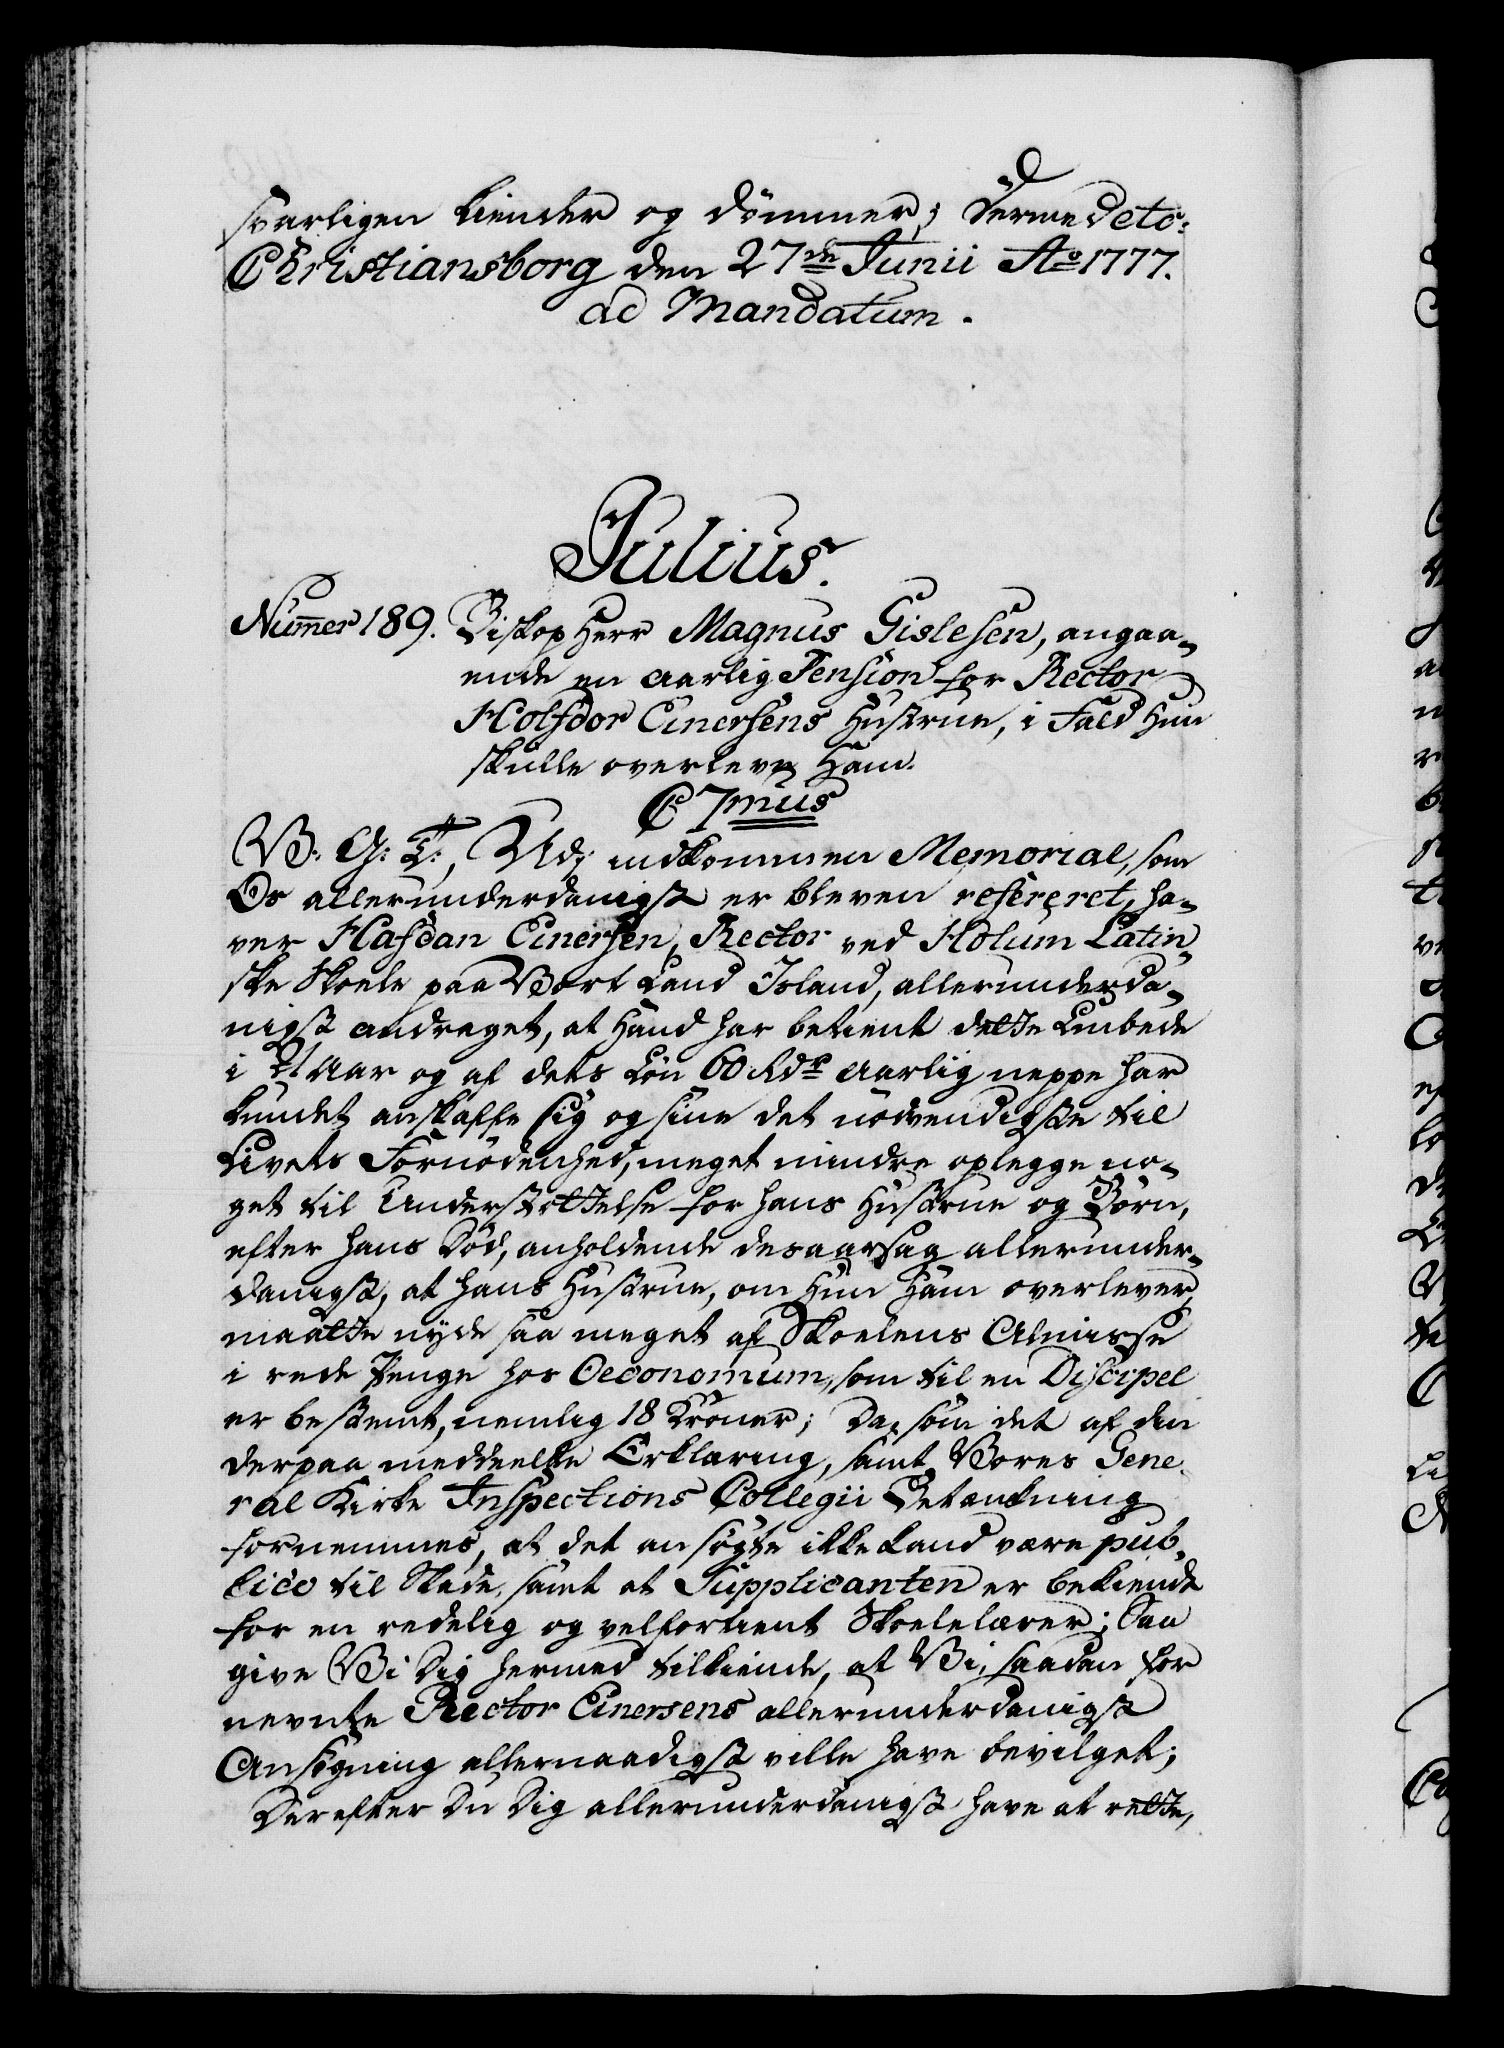 svarligen kiender og dömmer; Dermed etc:
Christiansborg den 27de Junii Ao 1777.
ad Mandatum.
Julius.
Nummer 189. Biskop Herr Magnus Gislesen, angaa-
ende en aarlig Pension for Rector
Holfdor Einersens Hustrue, i Fald Hun
skulle overleve Ham.
C 7mus
V: G: T:, Udi indkommen Memorial, som
Os allerunderdanigst er bleven refereret, ha-
ver Hafdan Einersen, Rector ved Holum Latin-
ske Skoele paa Vort Land Island, allerunderda-
nigst andraget, at Hand har betient dette Embede
i 21 Aar og af dets Lön 60 Rdr aarlig neppe har
kundet anskaffe sig og sine det nödvendigste til
Livets Fornödenhed, meget mindre oplegge no-
get til Understöttelse for hans Hustrue og Börn,
efter hans Död, anholdende desaarsag allerunder-
danigst, at hans Hustrue, om Hun Ham overlever,
maatte nyde saa meget af Skoelens Almisse
i rede Penge hos Oeconomum, som til en Discipel
er bestemt, nemlig 18 Kroner; Da som det af den
derpaa meddeelte Erklaring, samt Vores Gene-
ral Kirke Inspections Collegii Betænkning
fornemmes, at det ansögte ikke kand være pub-
lico til Skade, samt at Supplicanten er bekiendt
for en redelig og velfortient Skoelelærer; Saa
give Vi Dig hermed tilkiende, at Vi, saadan for
nevnte Rector Einersens allerunderdanigst
Ansögning allernaadigst ville have bevilget;
Derefter Du Dig allerunderdanigst have at rette,